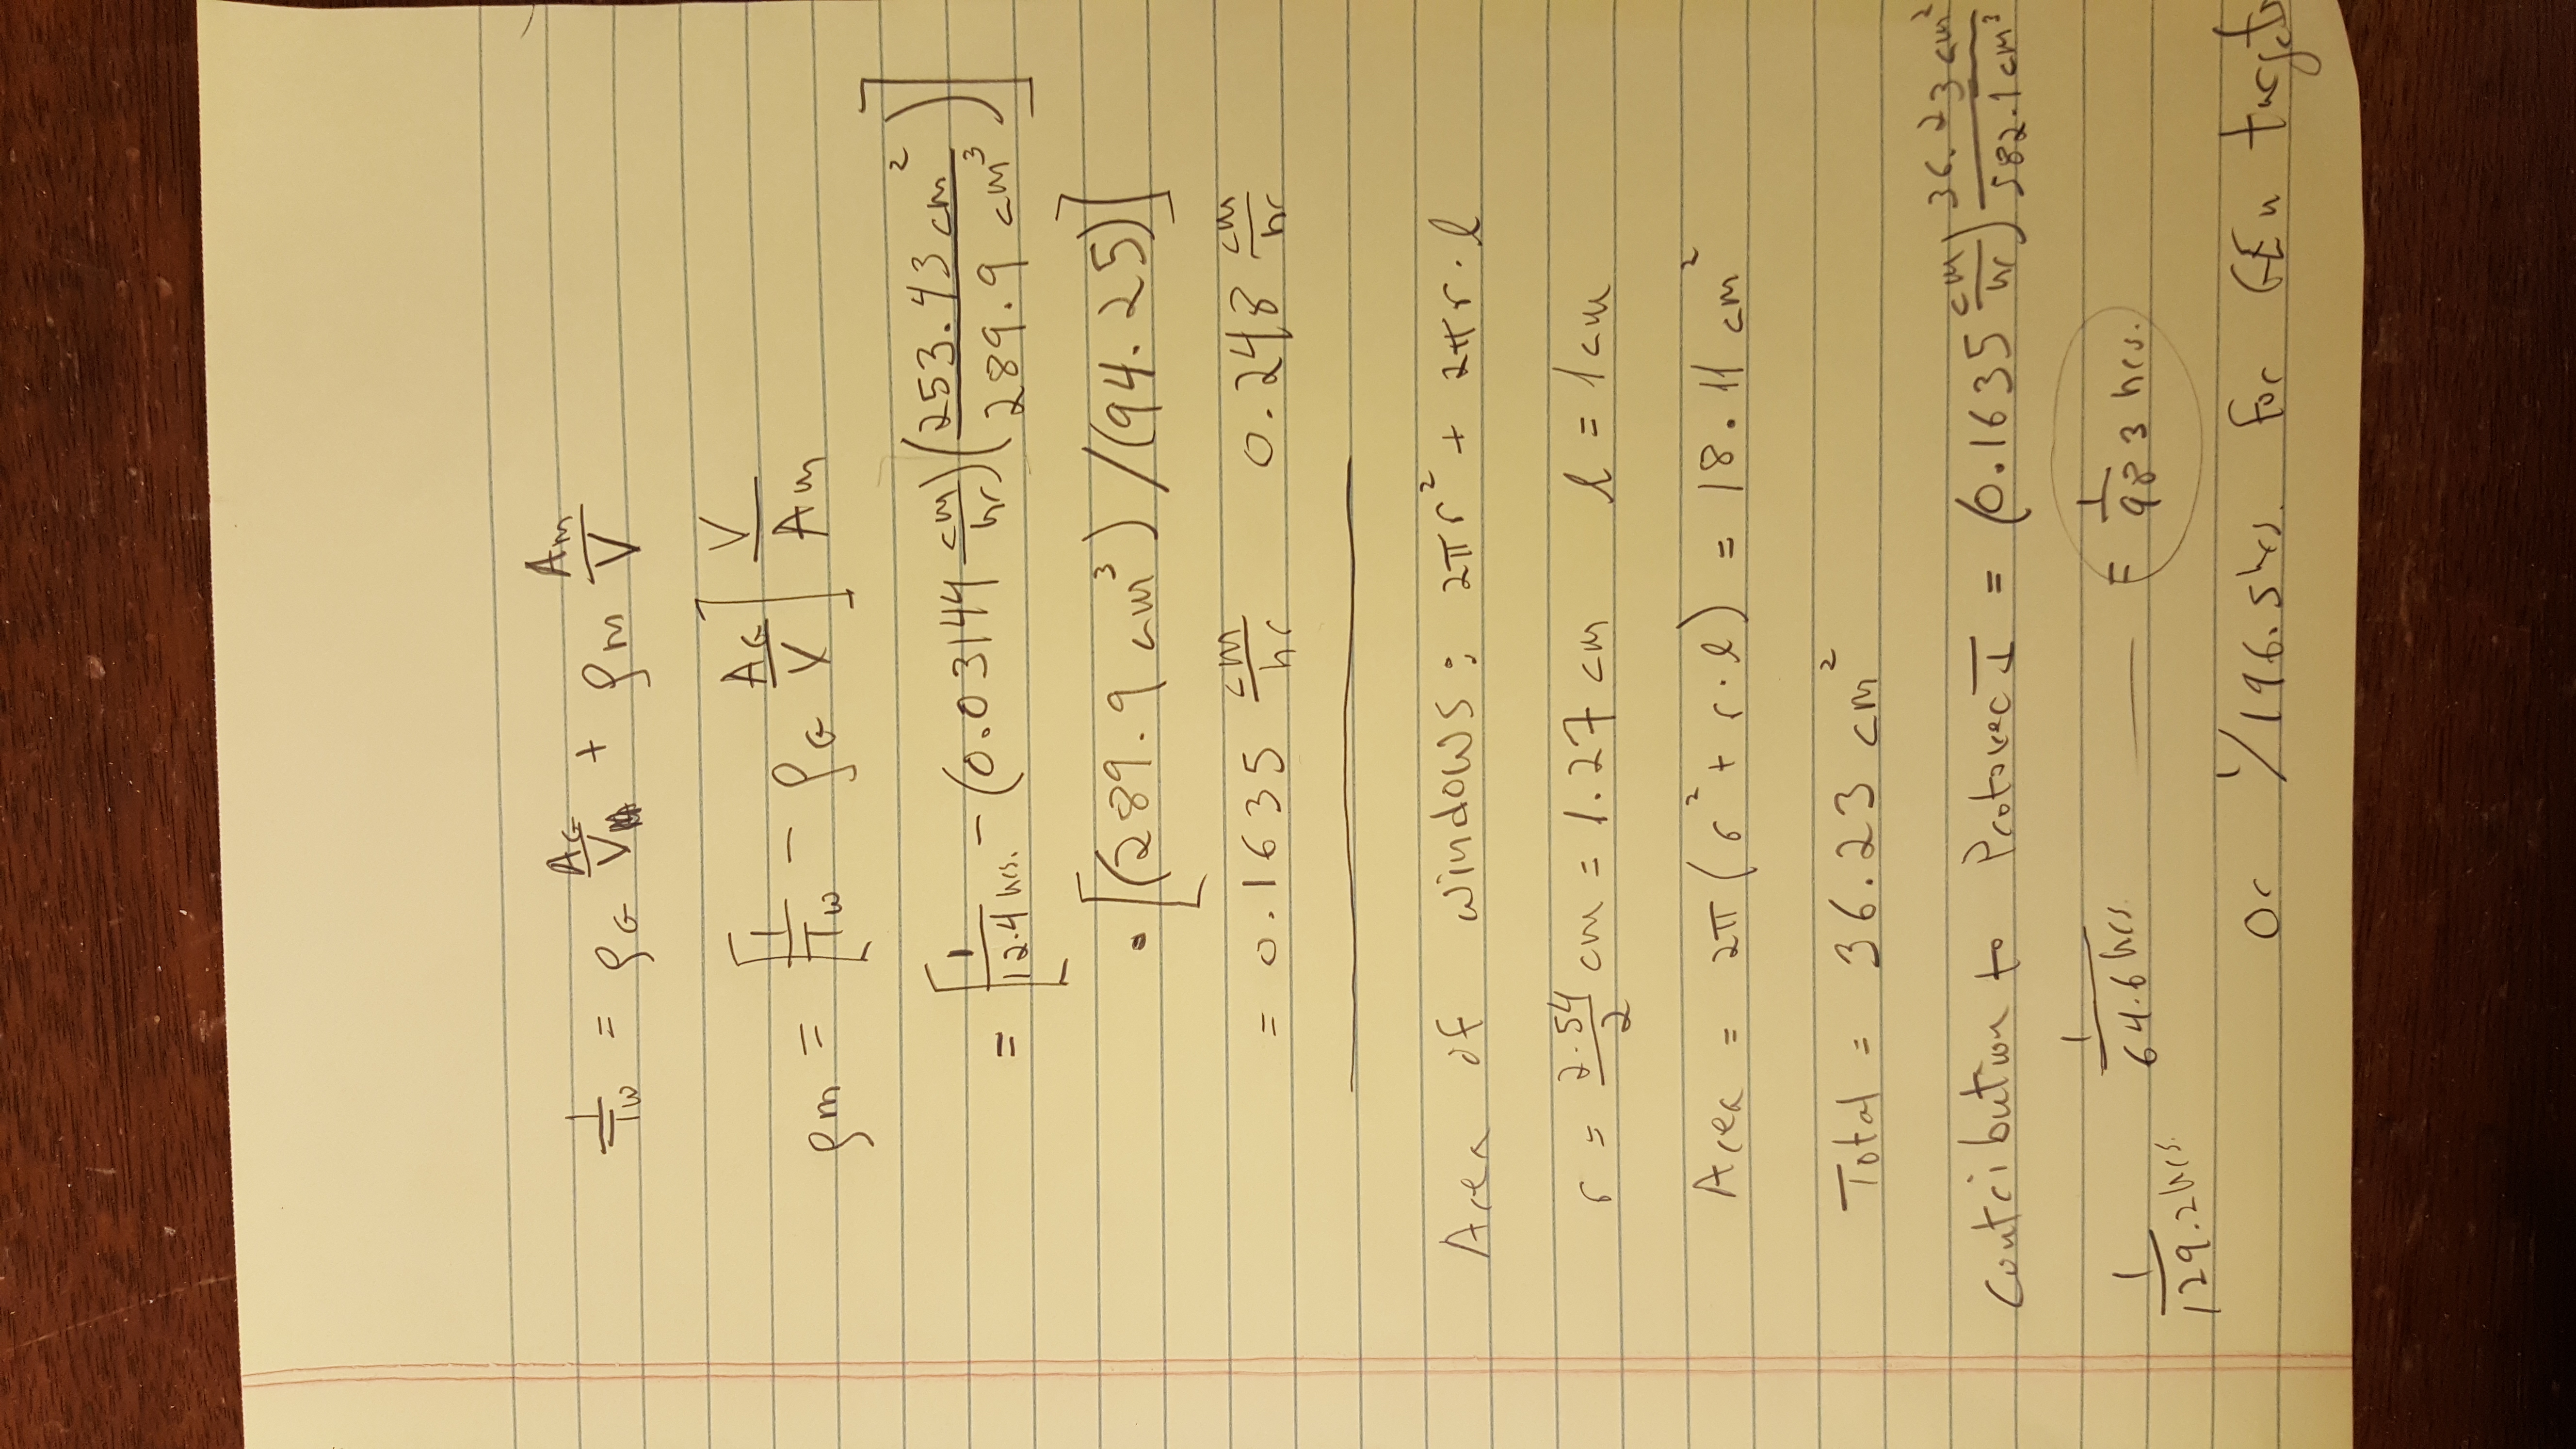 1/Tw = ρG AG/V + ρm Am/V
ρm = [1/Tw - ρG AG/V] V/Am
= [1/12.4 hrs. - (0.03144 cm/hr)(253.43 cm²/289.9 cm³)]
· [(289.9 cm³) / (94.25)]
= 0.1635 cm/hr 0.248 cm/hr
Area of windows: 2πr² + 2πr·l
r = 2.54/2 cm = 1.27 cm l = 1cm
Area = 2π(r² + r·l) = 18.11 cm²
Total = 36.23 cm²
Contribution to Protovec I = (0.1635 cm/hr) 36.23 cm²/582.1 cm³
1/129.2 hrs. 1/64.6 hrs. — = 1/983 hrs.
Or 1/196.5 hrs. For GEn targets